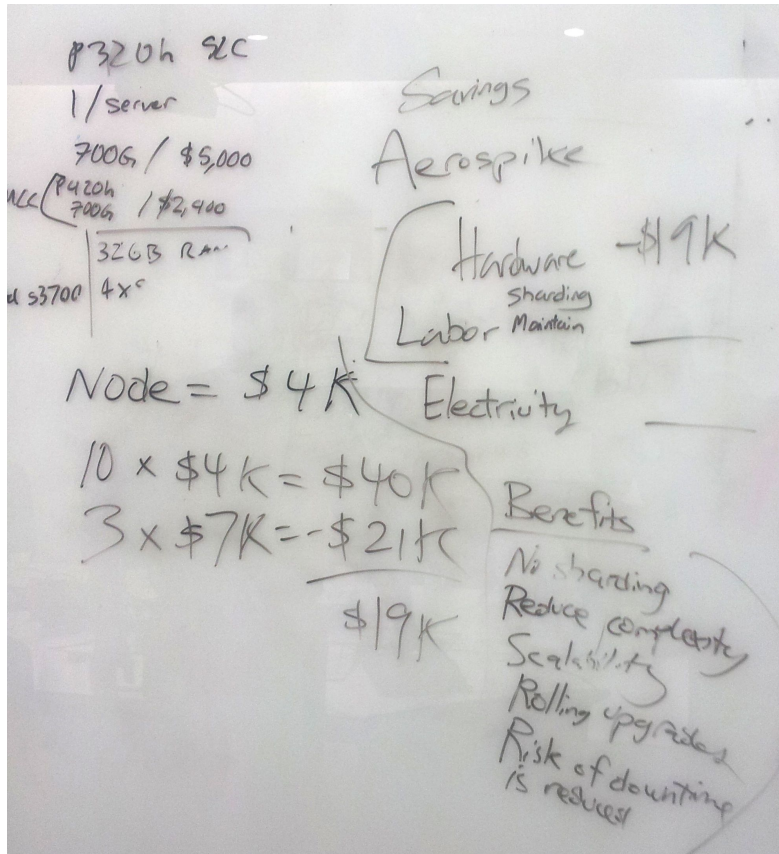 P320h SLC
1/server
700G / $5,000
P420h
700G / $2,400
32GB RAM
s3700 4x
Node = $4K
10 x $4K = $40K
3 x $7K = -$21K
$19K
Savings
Aerospike
Hardware -$19K
Sharding
Labor Maintain
Electricity
Benefits
No sharding
Reduce complexity
Scalability
Rolling upgrades
Risk of downtime
is reduced